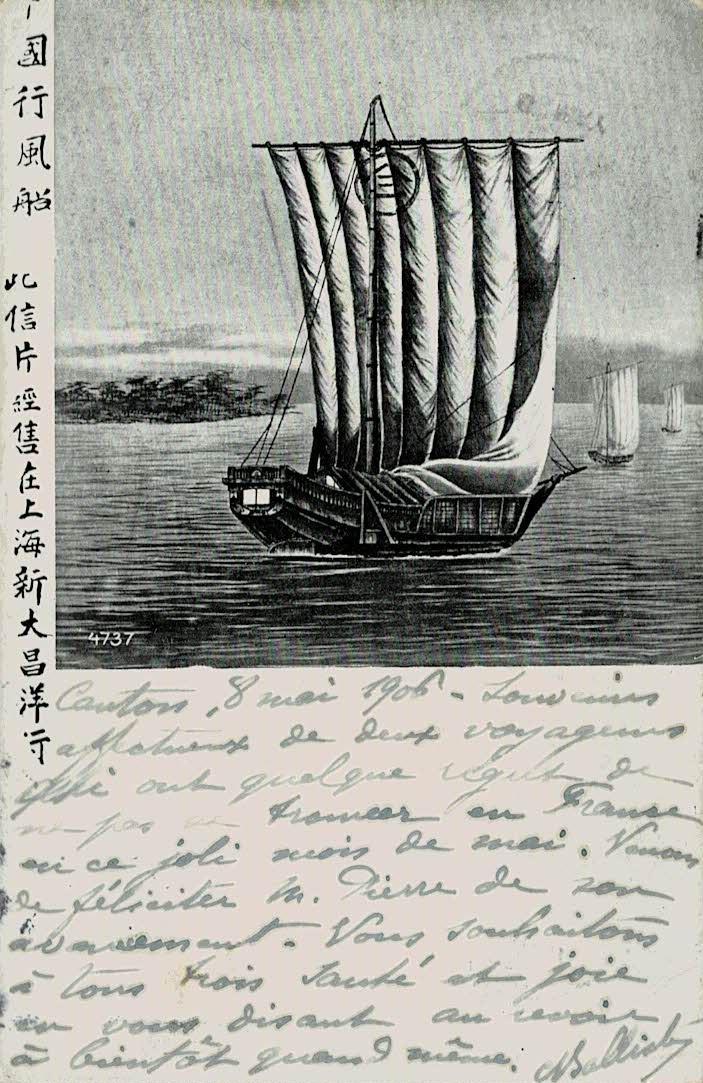 中國行風船 此信片經售在上海新大昌洋行
4737
Canton, 8 mai 1906 - Souvenirs
affectueux de deux voyageurs
qui ont quelque regret de
ne pas se trouver en France
en ce joli mois de mai. Venons
de féliciter M. Pierre de son
avancement. Vous souhaitons
à tous trois santé et joie
en vous disant au revoir
à bientôt quand même.